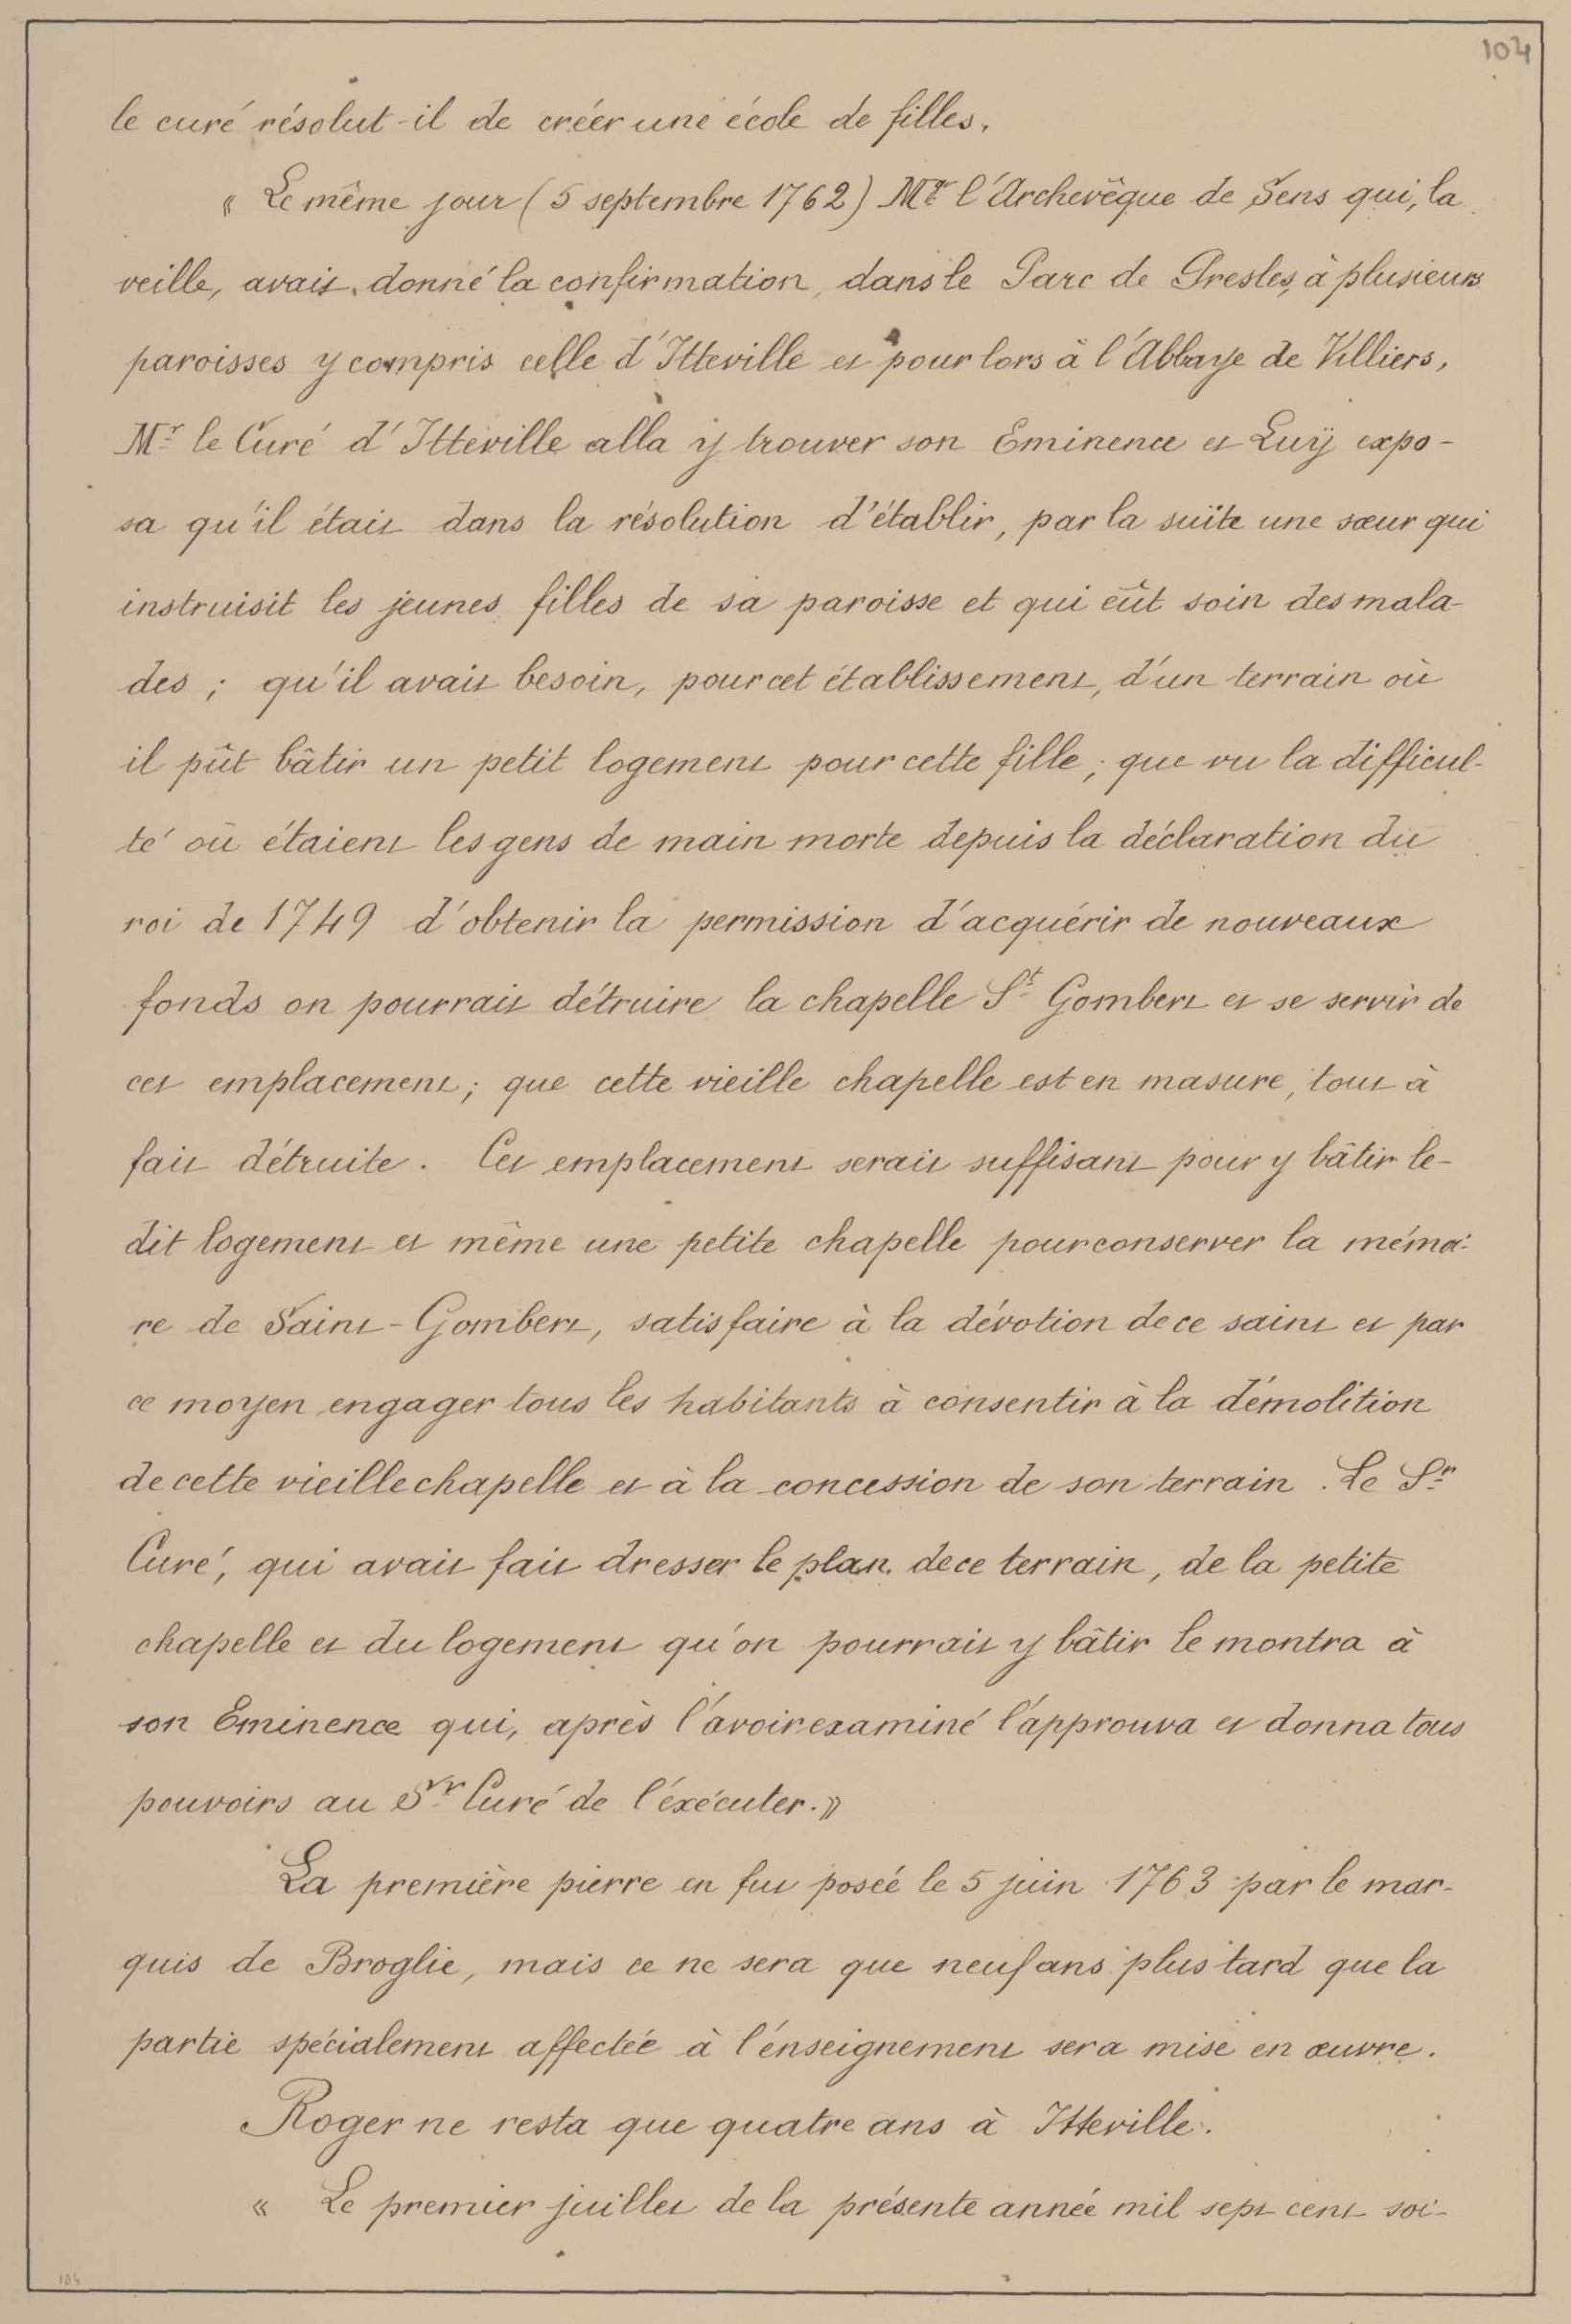 104
le curé résolut-il de créer une école de filles.
« Le même jour (5 septembre 1762) Mgr l'Archevêque de Sens qui, la
veille, avait donné la confirmation, dans le Parc de Presles, à plusieurs
paroisses y compris celle d'Itteville et pour lors à l'Abbaye de Villiers,
Mr le Curé d'Itteville alla y trouver son Eminence et Luÿ expo-
sa qu'il était dans la résolution d'établir, par la suite une sœur qui
instruisit les jeunes filles de sa paroisse et qui eût soin des mala-
des ; qu'il avait besoin, pour cet établissement, d'un terrain où
il pût bâtir un petit logement pour cette fille ; que vu la difficul-
té où étaient les gens de main morte depuis la déclaration du
roi de 1749 d'obtenir la permission d'acquérir de nouveaux
fonds on pourrait détruire la chapelle St Gombert et se servir de
cet emplacement ; que cette vieille chapelle est en masure, tout à
fait détruite. Cet emplacement serait suffisant pour y bâtir le-
dit logement et même une petite chapelle pour conserver la mémoi-
re de Saint-Gombert, satisfaire à la dévotion de ce saint et par
ce moyen engager tous les habitants à consentir à la démolition
de cette vieille chapelle et à la concession de son terrain. Le Sr
Curé, qui avait fait dresser le plan de ce terrain, de la petite
chapelle et du logement qu'on pourrait y bâtir le montra à
son Eminence qui, après l'avoir examiné l'approuva et donna tous
pouvoirs au Sr Curé de l'éxécuter. »
La première pierre en fut posée le 5 juin 1763 par le mar-
quis de Broglie, mais ce ne sera que neuf ans plus tard que la
partie spécialement affectée à l'enseignement sera mise en œuvre.
Roger ne resta que quatre ans à Itteville.
« Le premier juillet de la présente année mil sept cent soi-
104